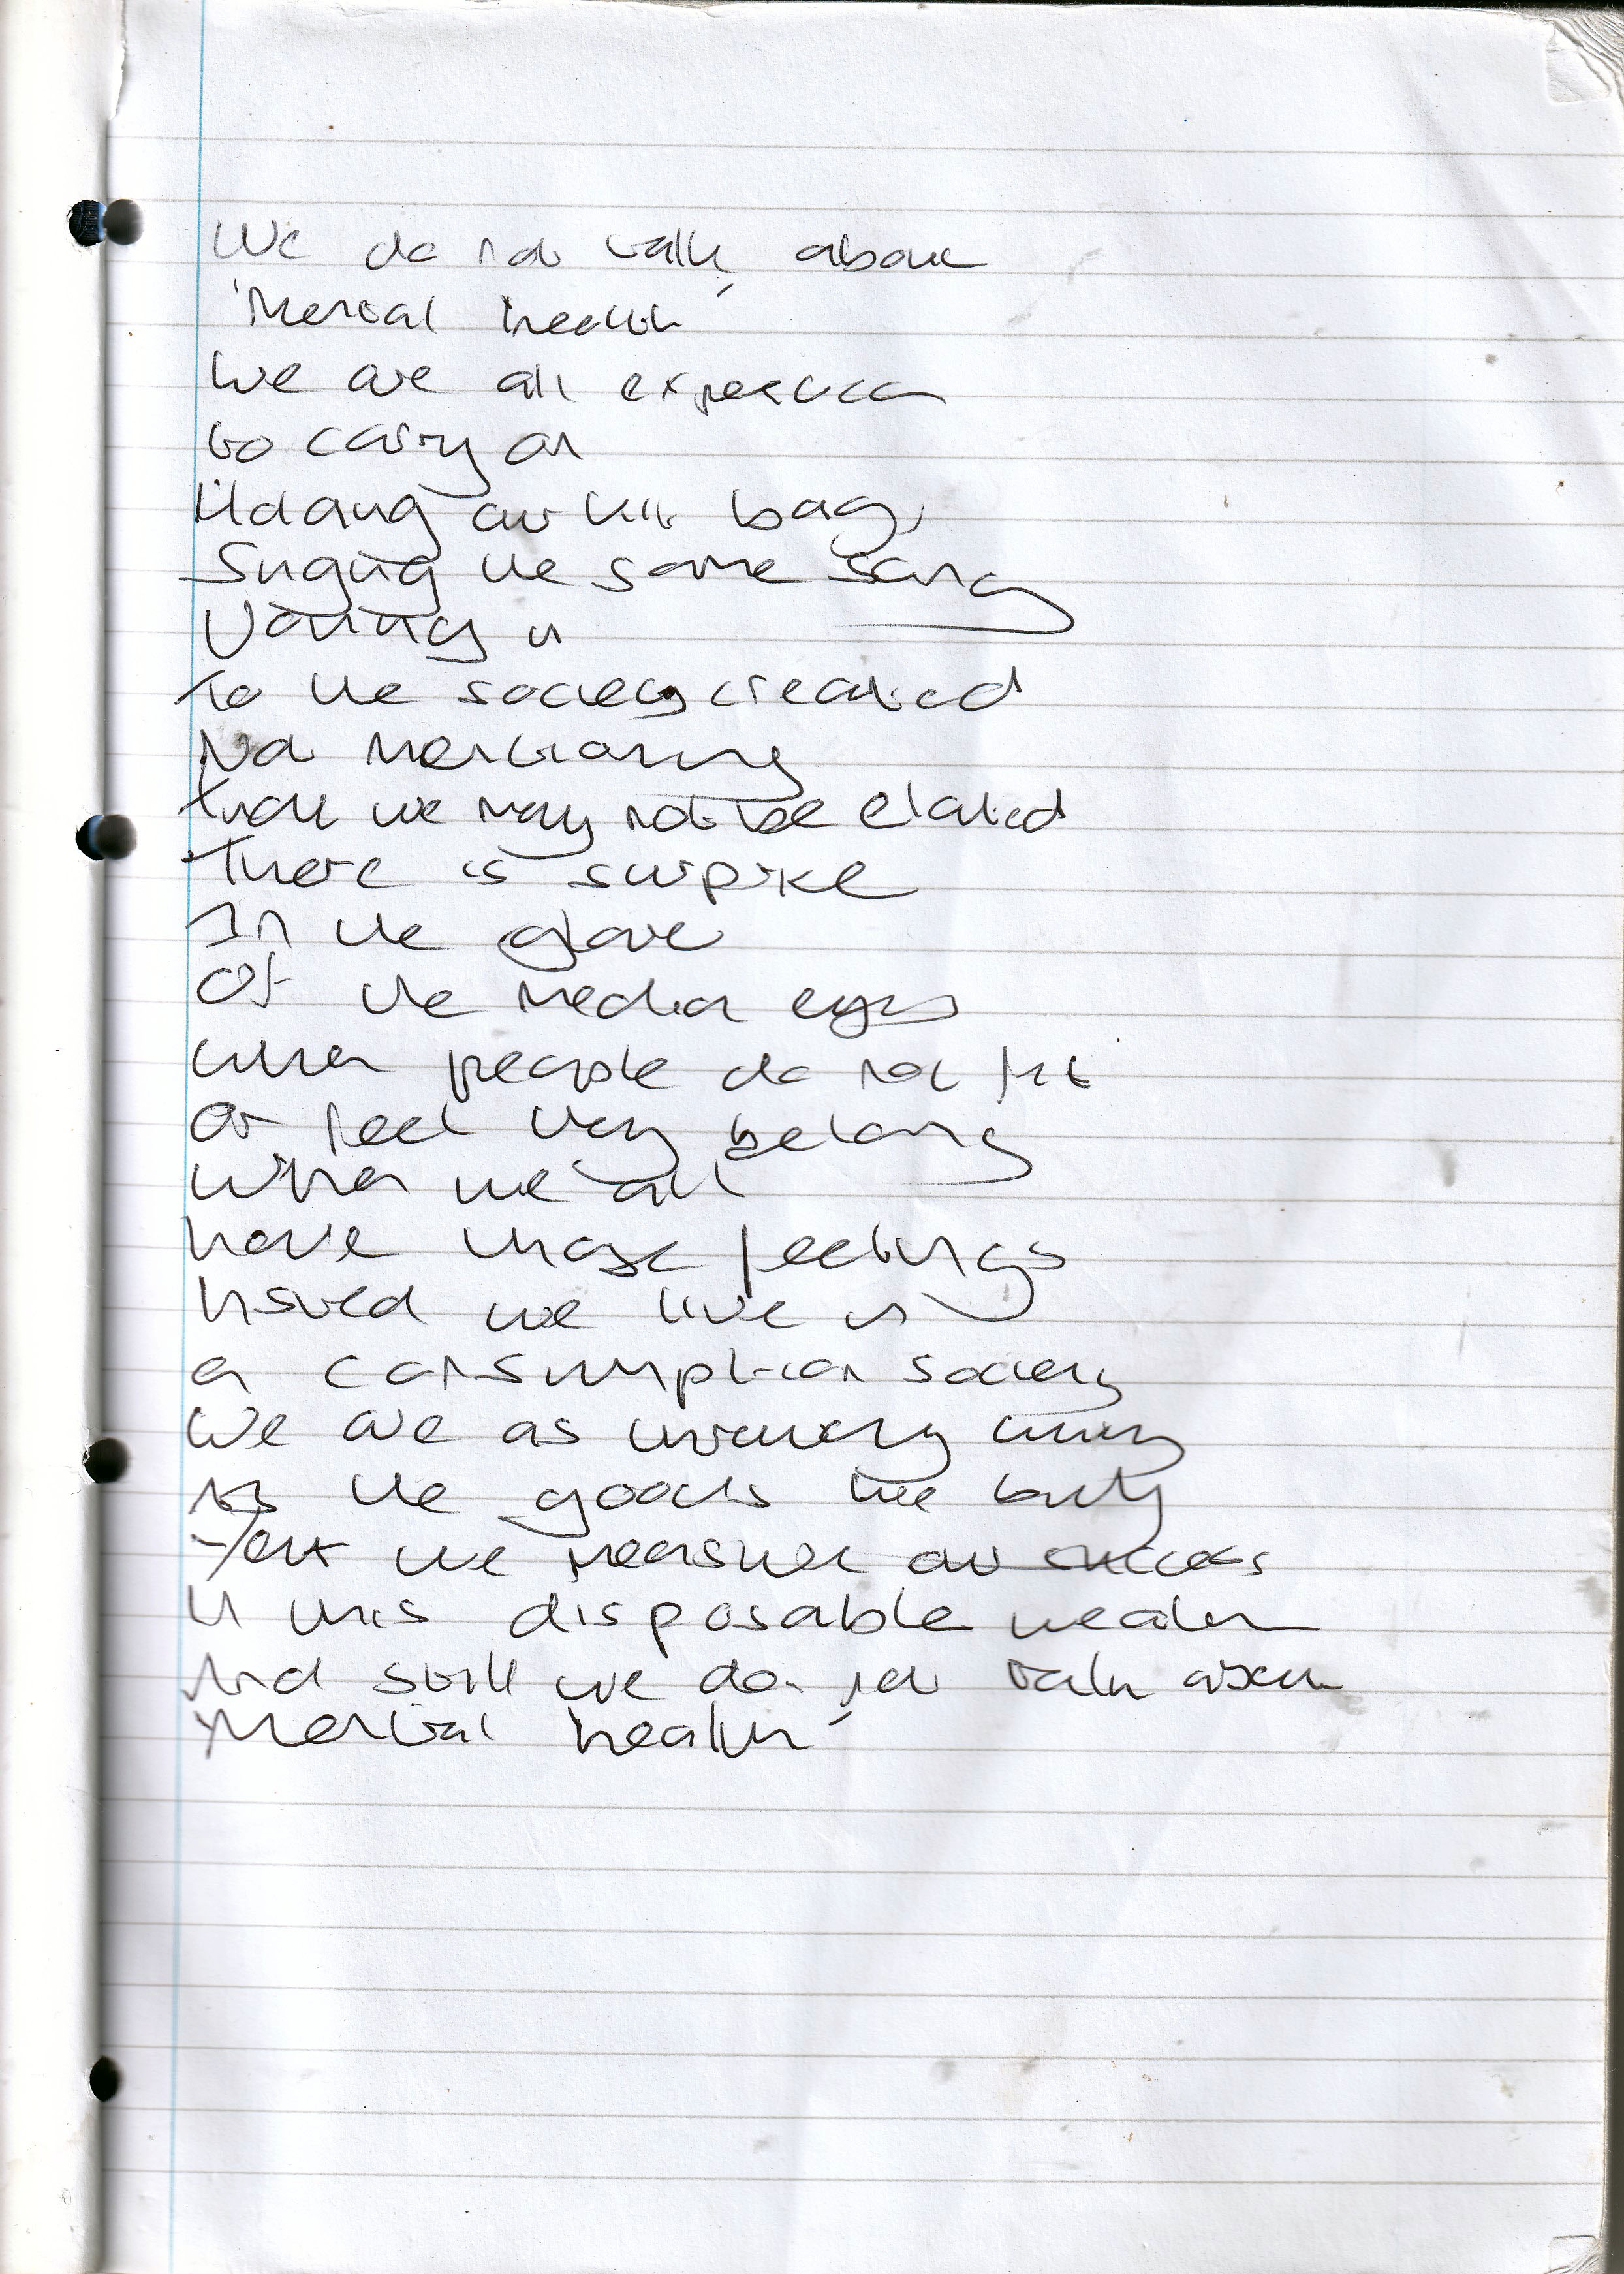 We do not talk about
'Mental health'
We are all expected
to carry on
Holding our kit bag,
Singing the same song
Joining in
To the society created
Not mentioning
that we may not be elated
There is surprise
In the glare
Of the media eyes
when people do not fit
Or feel they belong
When we all
have those feelings
Instead we live in
a consumption society
We are as throw away
As the goods we buy
Yet we measure our success
In this disposable wealth
And still we do not talk about
'Mental health'